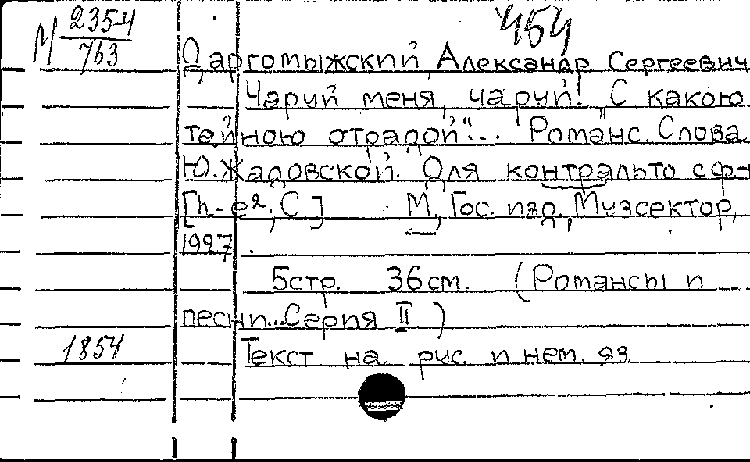 М 2354/763
454
Даргомыжский, Александр Сергеевич
Чаруй меня, чаруй! "С какою
тайною отрадой"... Романс. Слова
Ю. Жадовской. Для контральто с ф-п
[h-e², C] М., Гос. изд., Музсектор,
1927.
5стр. 36см. (Романсы и
песни... Серия II)
1854
Текст на рус. и нем. яз